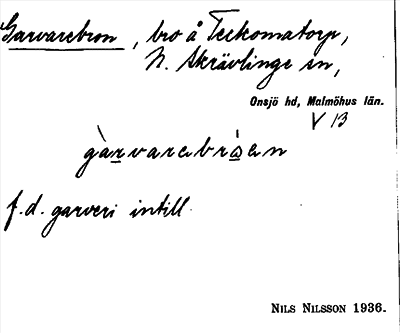 Garvarebron, bro å Teckomatorp,
N. Skrävlinge sn,
Onsjö hd, Malmöhus län.
V 13
gàrvarebròen
f.d. garveri intill
NILS NILSSON 1936.